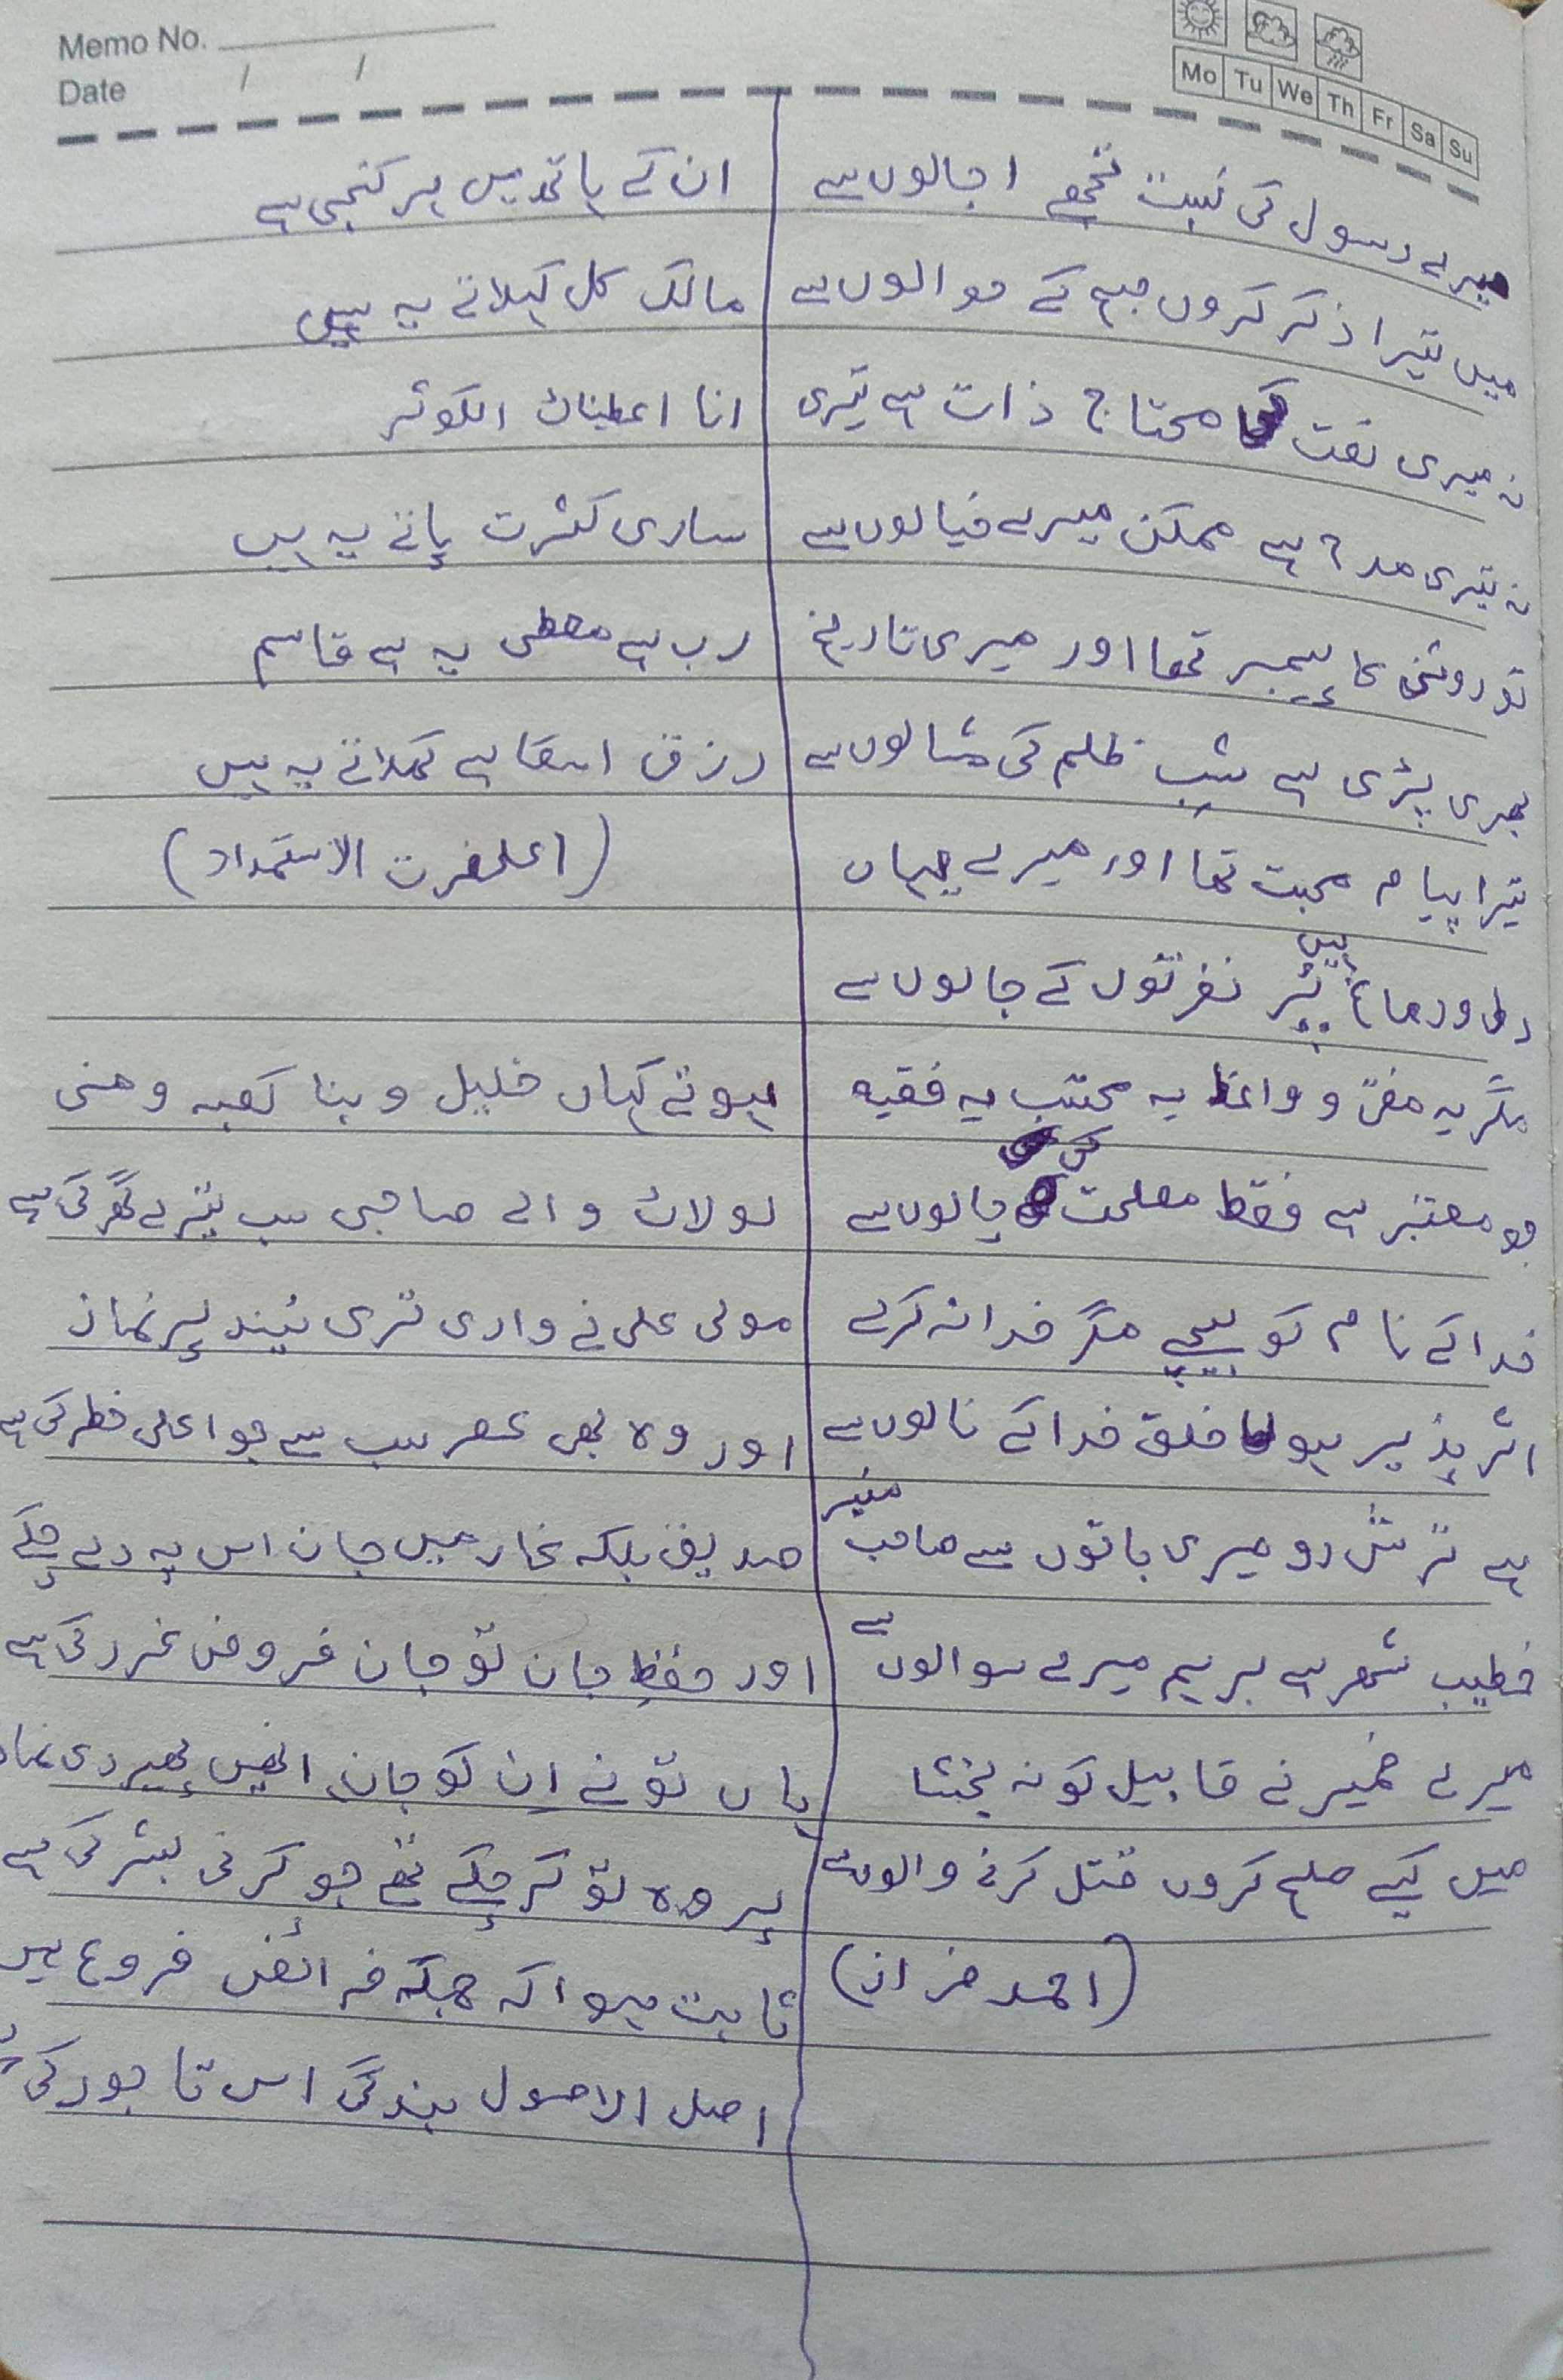 Memo No.
Date / /
Mo Tu We Th Fr Sa Su
میرے رسول کی نسبت تجھے اجالوں سے
میں تیرا ذکر کروں صبح کے حوالوں سے
نہ میری نعت کی محتاج ذات ہے تیری
نہ تیری مدح ہے ممکن میرے خیالوں سے
تو روشنی کا پیمبر تھا اور میری تاریخ
بھری پڑی ہے شبِ ظلم کی مثالوں سے
تیرا پیام محبت تھا اور میرے یہاں
دل و دماغ ہیں پُر نفرتوں کے جالوں سے
مگر یہ مفتی و واعظ یہ محتسب یہ فقیہ
جو معتبر ہے فقط مصلحت کی چالوں سے
خدا کے نام کو بیچے مگر خدا نہ کرے
اثر پذیر ہو خلق خدا کے نالوں سے
ہے ترش رو میری باتوں سے صاحب منبر
خطیب شہر ہے برہم میرے سوالوں سے
میرے ضمیر نے قابیل کو نہ بخشا
میں کیسے صلح کروں قتل کرنے والوں سے
(احمد فراز)
ان کے ہاتھ میں ہر کنجی ہے
مالک کل کہلاتے یہ ہیں
انا اعطینٰک الکوثر
ساری کثرت پاتے یہ ہیں
رب ہے معطی یہ ہے قاسم
رزق اسکا ہے کھلاتے یہ ہیں
(اعلحضرت الاستمداد)
ہوتے کہاں خلیل و بنا کعبہ و منی
لولاک والے صاحبی سب تیرے گھر کی ہے
مولی علی نے واری تری نیند پر نماز
اور وہ بھی عصر سب سے جو اعلی خطر کی ہے
صدیق بلکہ غار میں جان اس پہ دے چکے
اور حفظِ جان تو جان فروض غرر کی ہے
ہاں تو نے اِن کو جان انھیں پھیر دی نماز
پر وہ تو کر چکے تھے جو کرنی بشر کی ہے
ثابت ہوا کہ جملہ فرائض فروع ہیں
اصل الاصول بندگی اس تاجور کی ہے